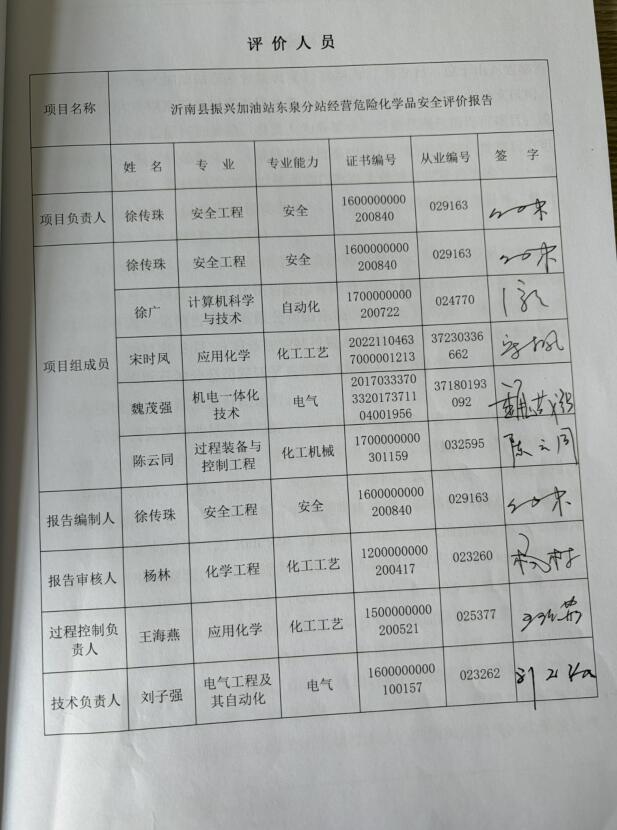 评价人员
项目名称 沂南县振兴加油站东泉分站经营危险化学品安全评价报告
姓名 专业 专业能力 证书编号 从业编号 签字
项目负责人 徐传珠 安全工程 安全 1600000000 029163
200840
徐传珠 安全工程 安全 1600000000 029163
200840
徐广 计算机科学 自动化 1700000000 024770
与技术 200722
项目组成员 宋时凤 应用化学 化工工艺 2022110463 37230336
7000001213 662
魏茂强 机电一体化 电气 2017033370 37180193
技术 3320173711 092
04001956
陈云同 过程装备与 化工机械 1700000000 032595 陈云同
控制工程 301159
报告编制人 徐传珠 安全工程 安全 1600000000 029163
200840
报告审核人 杨林 化学工程 化工工艺 1200000000 023260
200417
过程控制负 王海燕 应用化学 化工工艺 1500000000 025377
责人 200521
技术负责人 刘子强 电气工程及 电气 1600000000 023262
其自动化 100157